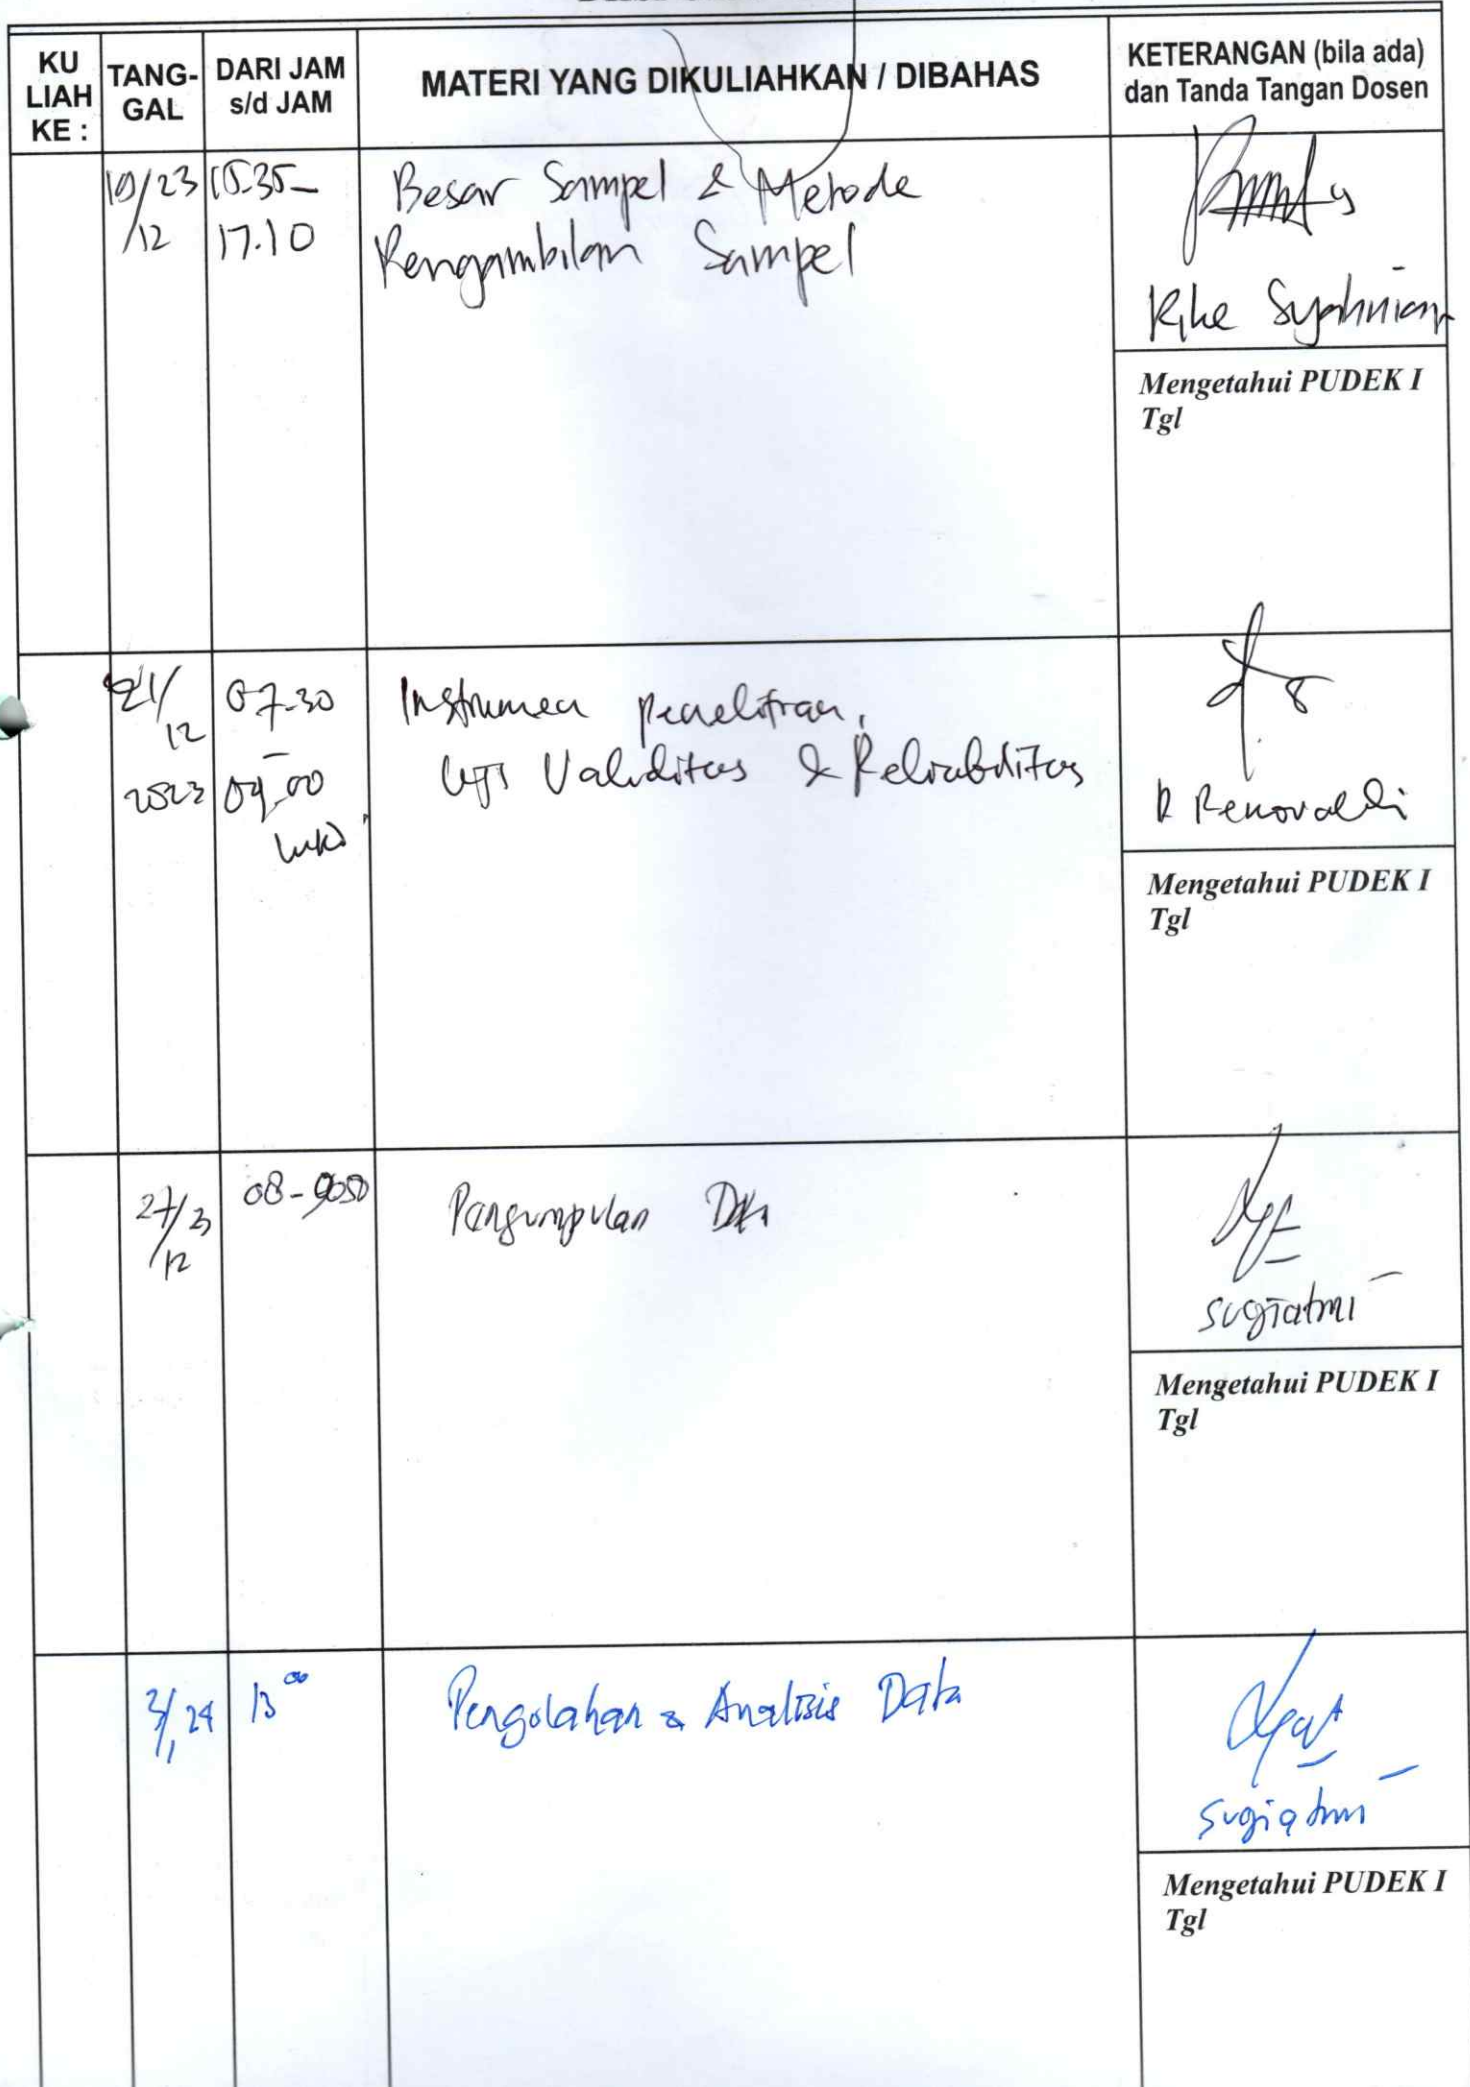 KU
LIAH
KE :
TANG-
GAL
DARI JAM
s/d JAM
MATERI YANG DIKULIAHKAN / DIBAHAS
KETERANGAN (bila ada)
dan Tanda Tangan Dosen
19/23
/12
15.35-
17.10
Besar Sampel & Metode
Pengambilan Sampel
Mengetahui PUDEK I
Tgl
21/
12
2023
07.30
-
09.00
Instrumen penelitian,
Uji Validitas & Reliabilitas
R Renovaldi
Mengetahui PUDEK I
Tgl
27/23
/12
Pengumpulan Data
sugiatmi
Mengetahui PUDEK I
Tgl
3/1 24
13 00
Pengolahan & Analisis Data
sugiatmi
Mengetahui PUDEK I
Tgl